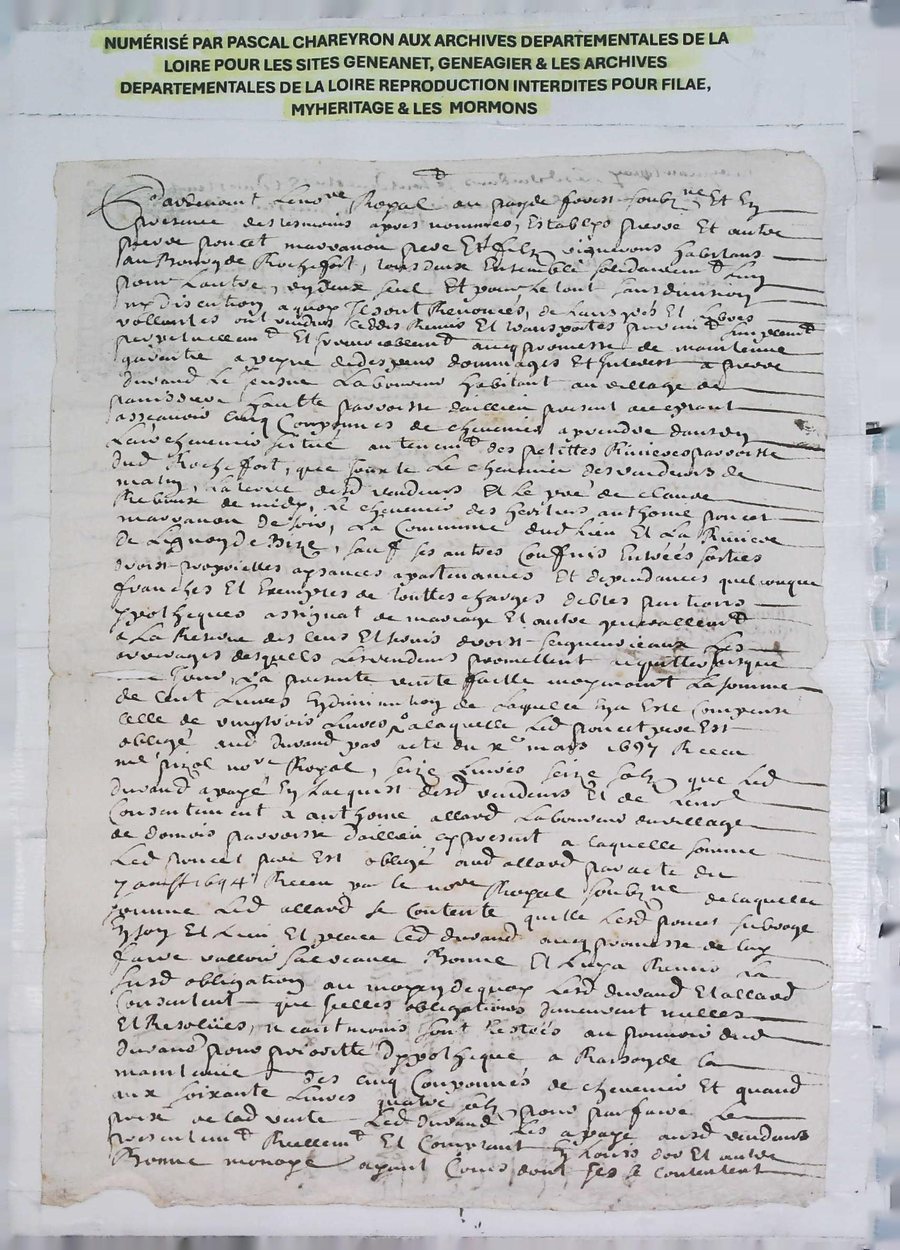 NUMÉRISÉ PAR PASCAL CHAREYRON AUX ARCHIVES DEPARTEMENTALES DE LA
LOIRE POUR LES SITES GENEANET, GENEAGIER & LES ARCHIVES
DEPARTEMENTALES DE LA LOIRE REPRODUCTION INTERDITES POUR FILAE,
MYHERITAGE & LES MORMONS
Pardevant Royal au pays de forests soubzne Et En
presence des tesmoins apres nommes, Establys pierre Et autre
pierre poncet marranon pere Et filz vignerons habitans
au Bourg de Rochefort, tous deux Ensemble solidairemt Lung
pour Lautre, un deux seul Et pour le tout sans division
ny discution a quoy Ils ont Renoncés, de Leurs grés Et libres
vollontés ont vendus cedés Remis Et transportés purement simplemt
perpetuellemt Et Irrevocablemt avecq promesse de maintenue
garentie a peyne de despens dommages Et Interest a pierre
durand Le jeusne Laboureur habitant au village de
haulte parroisse daillieu present acceptant
assçavoir Cinq Couponnés de chenevier a prendre dans un
chenevier situé au tenemt des petittes Rivieres parroisse
dud Rochefort, que jouxte Le chenevier des vendeurs de
matin, La terre desd vendeurs Et Le pré de claude
de midy, Le chenevier des heritiers anthoine poncet
marranon de soir, La Commune dud Lieu Et La Riviere
de de Bize, sauf ses autres Confins Entrées sorties
droist proprietés aysances apartenances Et dependances quelconque
franches Et Exemptes de touttes charges debtes pentions
ypotheques assignat de mariage Et autre generallemt
a La Reserve des Cens Et servis droist seigneuriaux Les
arrerages desquels Les vendeurs promettent acquitter jusque
a ce Jour, La presente vente faitte moyenant La somme
de Cent Livres En diminution de Laquelle Il En Este Compensé
celle de vingt trois Livres a laquelle Led poncet pere Est
obligé aud durand par acte du xe mars 1697 Receu
me nore Royal, seize Livres seize solz que Led
durand a payé En Lacquist desd vendeurs Et de Leurs
Consentement a anthoine allard Laboureur du village
de parroisse daillieu cy present a laquelle somme
Led poncet pere Est obligé aud allard par acte du
7 aoust 1694 Receu par le nore Royal soubzne de laquelle
somme Led allard se Contente quitte Lesd poncet subroge
En son Et Lieu Et place Led durand avecq promesse de luy
faire valloir sa creance Bonne Et Luy a Remis La
susd obligation au moyen de quoy Lesd durand Et allard
Consentent que Icelles obligations demeurent nulles
Et Resolües, neantmoins sont Restées au pouvoir dud
durand pour priorité dyppotheque a Raison de la
maintenue des cinq Couponnés de chenevier Et quand
aux soixante Livres quatre solz pour parfaire Le
prix de lad vente Led durand Les a payé ausd vendeurs
presentemt Reellemt Et Comptant En Louis dor Et autre
Bonne monoye ayant Cours dont Ils se contentent